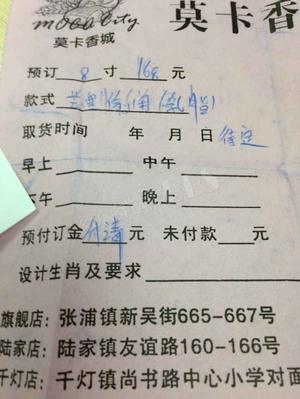 MOCA City
莫卡香
莫卡香城
预订 8 寸 168 元
款式
取货时间 年 月 日 待定
早上 中午
下午 晚上
预付订金 付清 元 未付款 元
设计生肖及要求
旗舰店：张浦镇新吴街665-667号
陆家店：陆家镇友谊路160-166号
千灯店：千灯镇尚书路中心小学对面